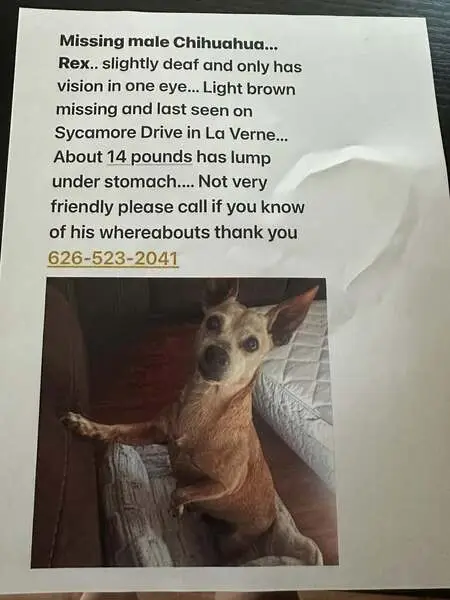 Missing male Chihuahua...
Rex.. slightly deaf and only has
vision in one eye... Light brown
missing and last seen on
Sycamore Drive in La Verne...
About 14 pounds has lump
under stomach.... Not very
friendly please call if you know
of his whereabouts thank you
626-523-2041